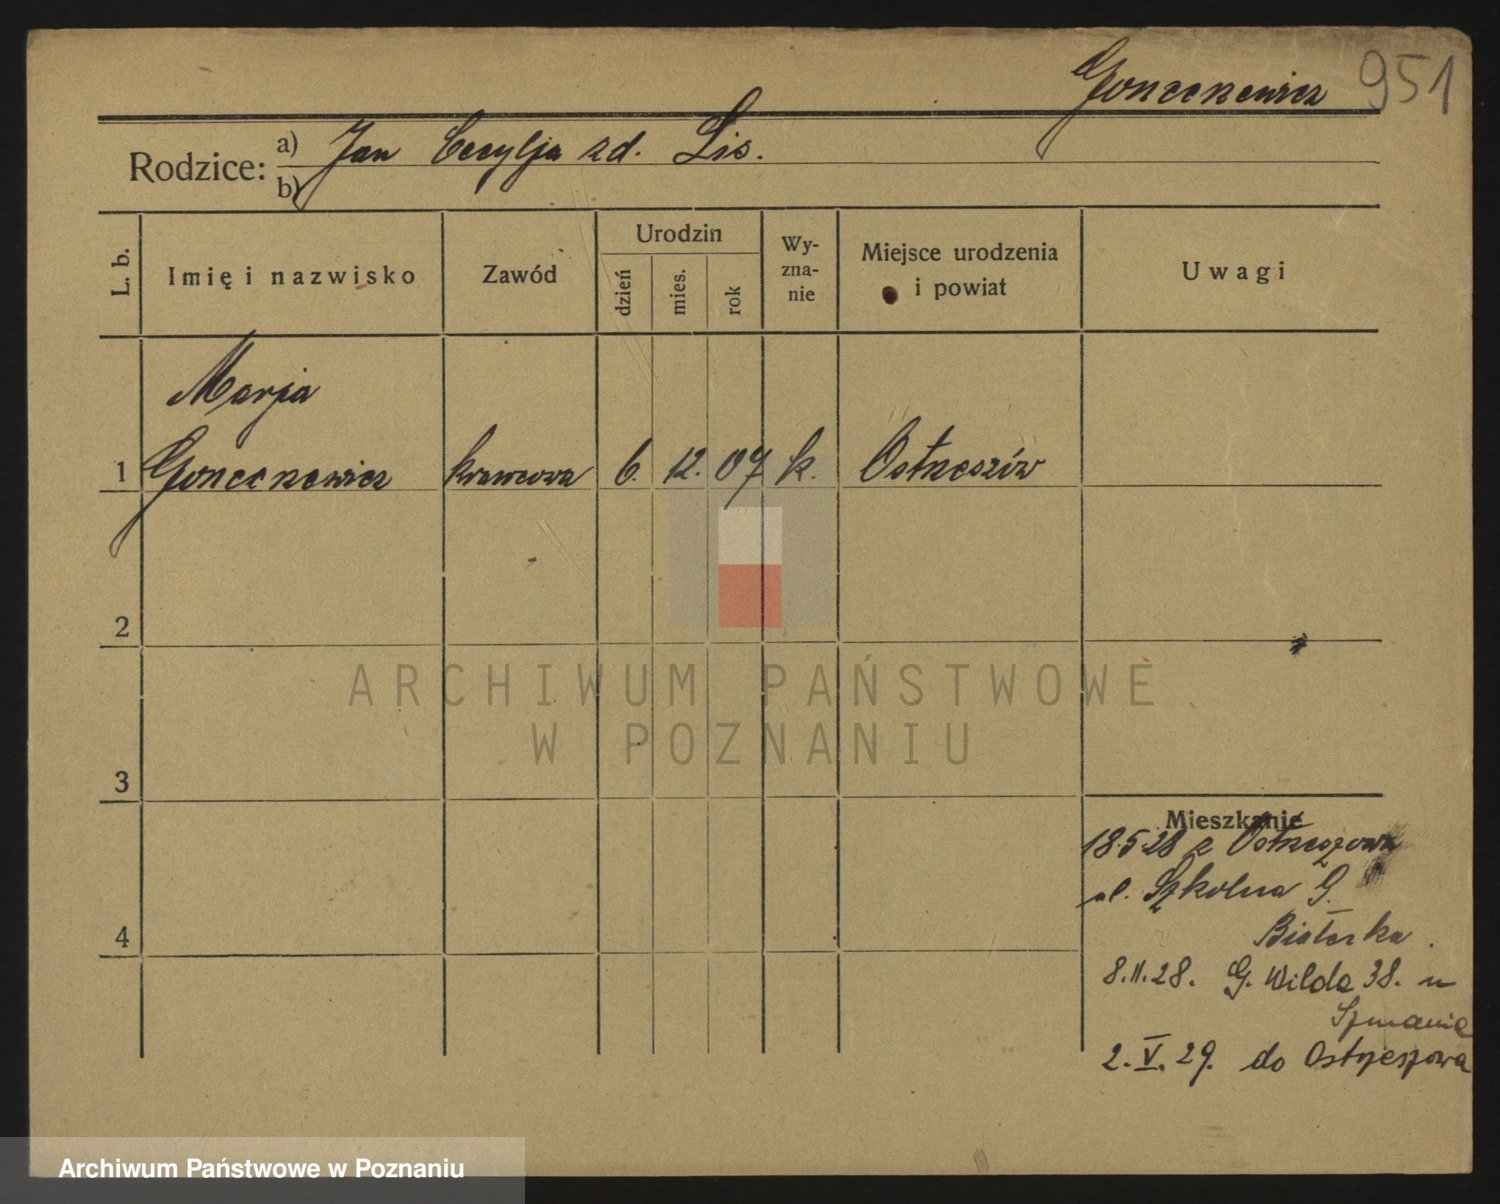 951
Rodzice: a) Jan Cecylja zd. Lis.
b)
L. b.
Imię i nazwisko
Zawód
Urodzin
dzień
mies.
rok
Wy-
zna-
nie
Miejsce urodzenia
i powiat
Uwagi
Marja
1 krawcowa 6. 12. 07 k. Ostrzeszów
2
3
4
Mieszkanie
18.5.28 z Ostrzeszowa
ul. Szkolna 9.
8.11.28. G. Wilda 38. u
2.V.29. do Ostrzeszowa
ARCHIWUM PAŃSTWOWE
W POZNANIU
Archiwum Państwowe w Poznaniu